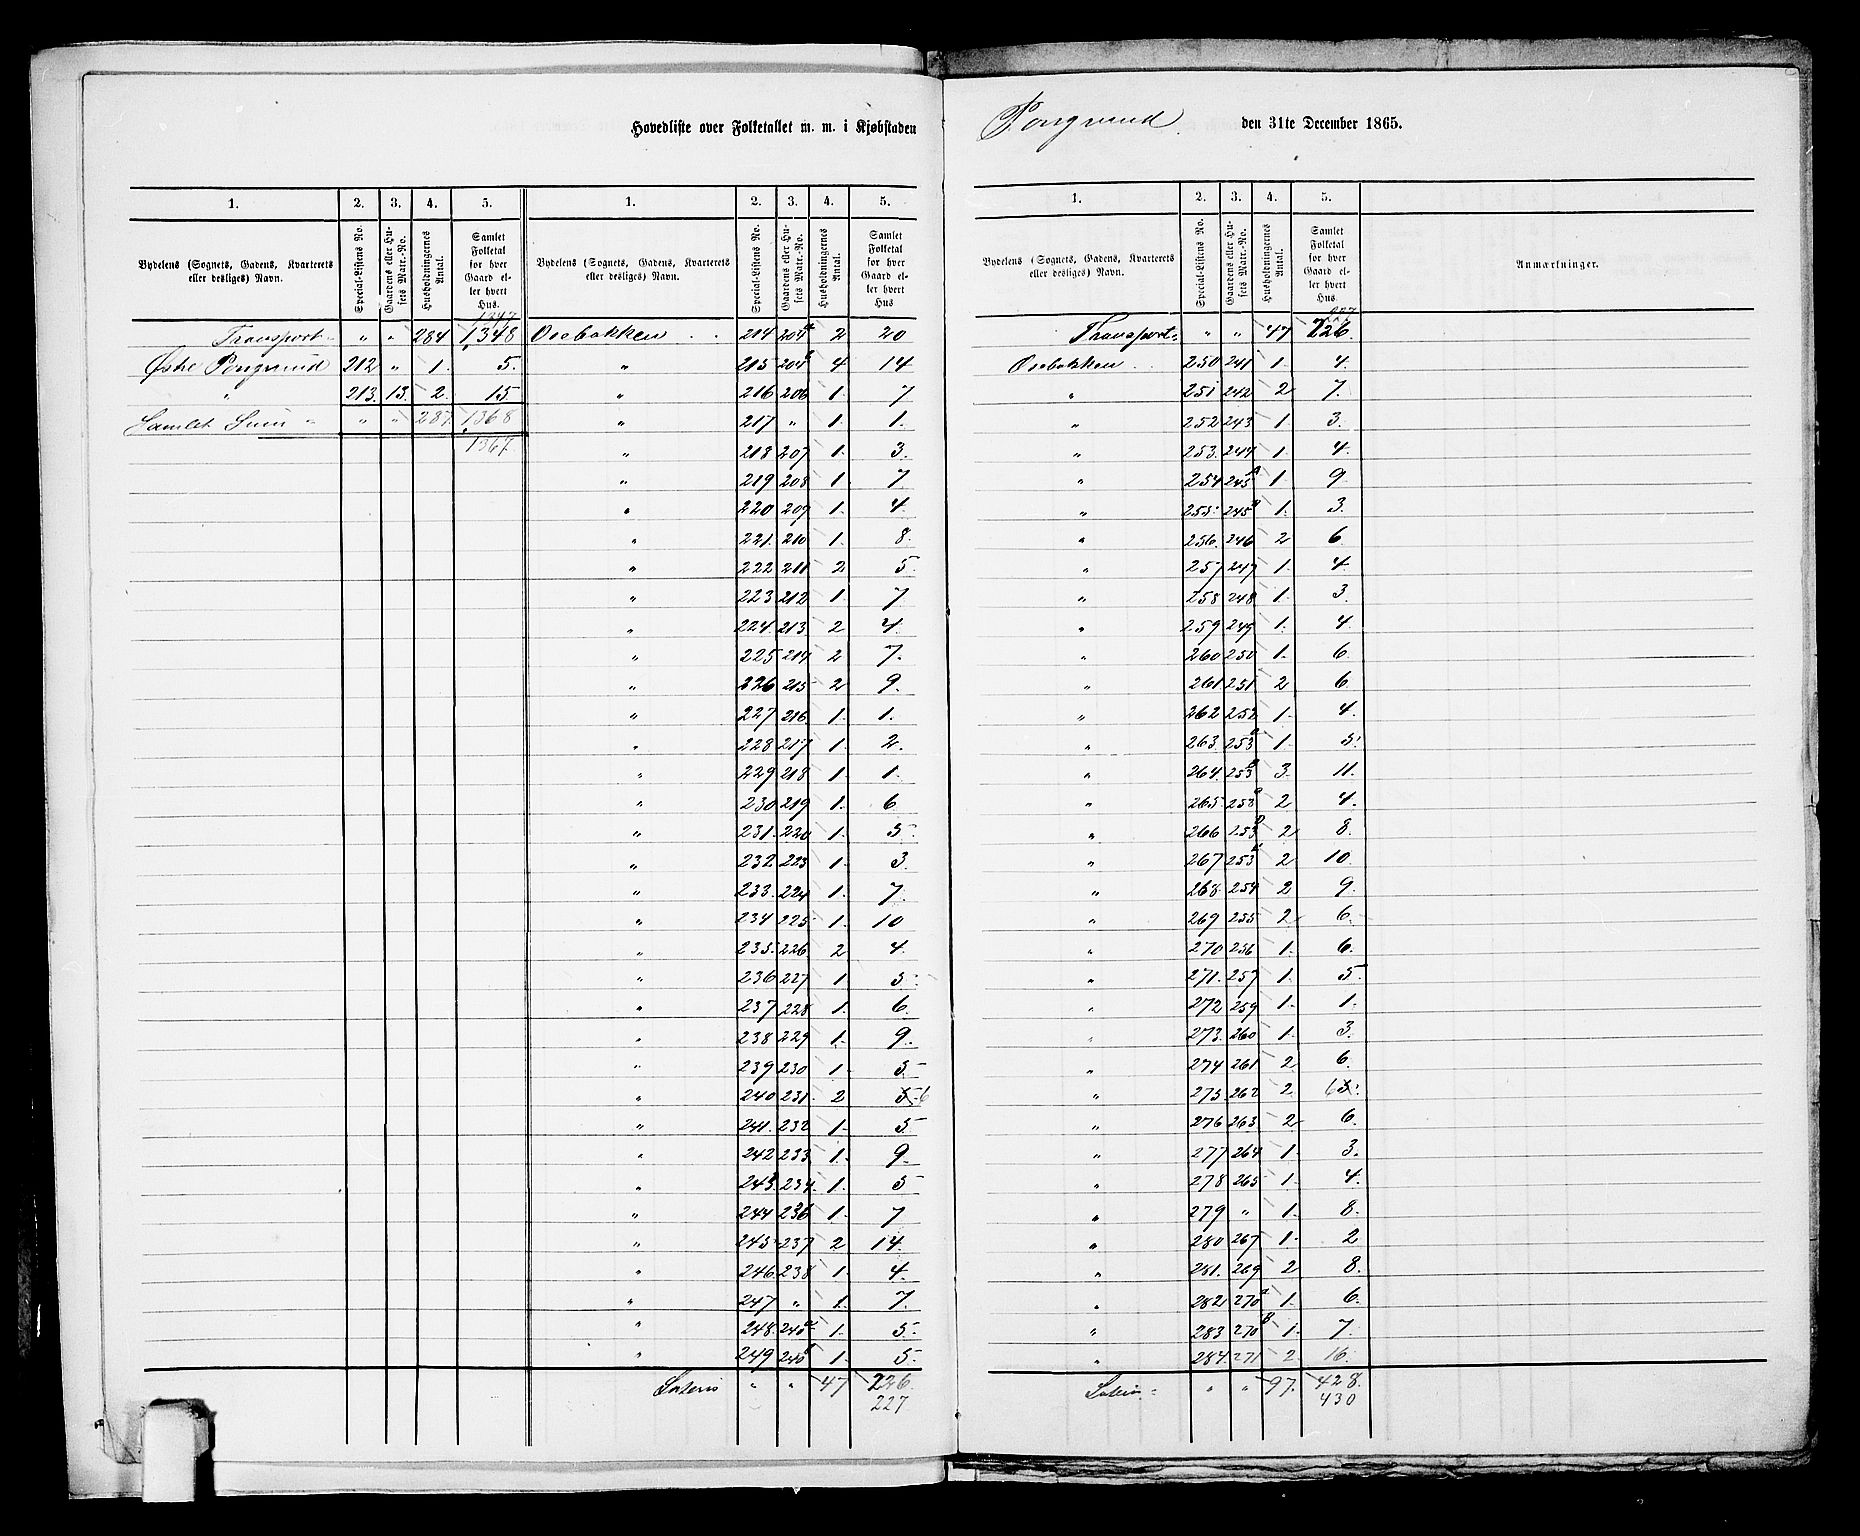 Hovedliste over Folketallet m. m. i Kjøbstaden Porsgrund den 31te December 1865.
1. 2. 3. 4. 5. 1. 2. 3. 4. 5.
Bydelens (Sognets, Gadens, Kvarterets eller desliges) Navn. Special-Listens No. Gaardens eller Husets Matr.-No. Husholdningernes Antal. Samlet Folketal for hver Gaard eller hvert Hus. Bydelens (Sognets, Gadens, Kvarterets eller desliges) Navn. Special-Listens No. Gaardens eller Husets Matr.-No. Husholdningernes Antal. Samlet Folketal for hver Gaard eller hvert Hus
1347
Transport " " 284 1348
Østre Porsgrund 212 " 1. 5.
" 213. 13. 2. 15.
Samlet Sum " " " 287. 1368
1367.
Osebakken 214 204a 2 20
" 215 204 4 14
" 216 206 1. 7
" 217 " 1. 1.
" 218 207 1. 3.
" 219 208 1. 7
" 220 209 1. 4.
" 221. 210 1. 8.
" 222 211 2 5.
" 223 212 1. 7.
" 224. 213 2 4.
" 225 214 2 7.
" 226 215 2 9.
" 227 216 1. 1.
" 228 217 1. 2.
" 229 218 1. 1.
" 230 219 1. 6.
" 231. 220 1. 5.
" 232 223 1. 3
" 233. 224 1. 7.
" 234 225 1. 10
" 235. 226 2 4.
" 236 227 1 5.
" 237 228 1. 6.
" 238 229 1. 9.
" 239 230 1. 5
" 240 231. 2 5 6
" 241. 232 1. 5
" 242 233 1. 9.
" 243. 234. 1. 5
" 244 236 1. 7
" 245 237 2 14.
" 246 238 1. 4.
" 247 " 1. 7.
" 248. 240a 1. 5.
" 249 240 1. 5.
Lateris " " 47 226.
227
1. 2. 3. 4. 5.
Bydelens (Sognets, Gadens, Kvarterets eller desliges) Navn. Special-Listens No. Gaardens eller Husets Matr.-No. Husholdningernes Antal. Samlet Folketal for hver Gaard eller hvert Hus Anmærkninger.
227
Transport " " 47 226.
Osebakken 250 241 1 4.
" 251 242 2 7.
" 252 243 1 3.
" 253. 244 1. 4
" 254 245A 1 9
" 255 245B 1. 3.
" 256. 246 2 6
" 257 247 1. 4
" 258 248 1. 3.
" 259 249 1. 4
" 260 250 1. 6
" 261. 251 2 6
" 262 252 1. 4.
" 263 253 1. 5.
" 264. 253 3. 11.
" 265. 253 2 4.
" 266 253D 2 8.
" 267 253 2 10.
" 268. 254 2 9.
" 269 255 2 6.
" 270 256 1. 6.
" 271. 257 1. 5.
" 272 259 1. 1.
" 273. 260 1. 3.
" 274 261 2 6.
" 275 262 2 6 5.
" 276 263 2 6.
" 277 264 1. 3.
" 278 265 1. 4.
" 279 " 1. 8.
" 280 267 1. 2
" 281. 269 2 8.
" 282 270a 1. 6.
" 283 270B 1. 7.
" 284. 271 2 16.
Lateris " " 97. 428.
430